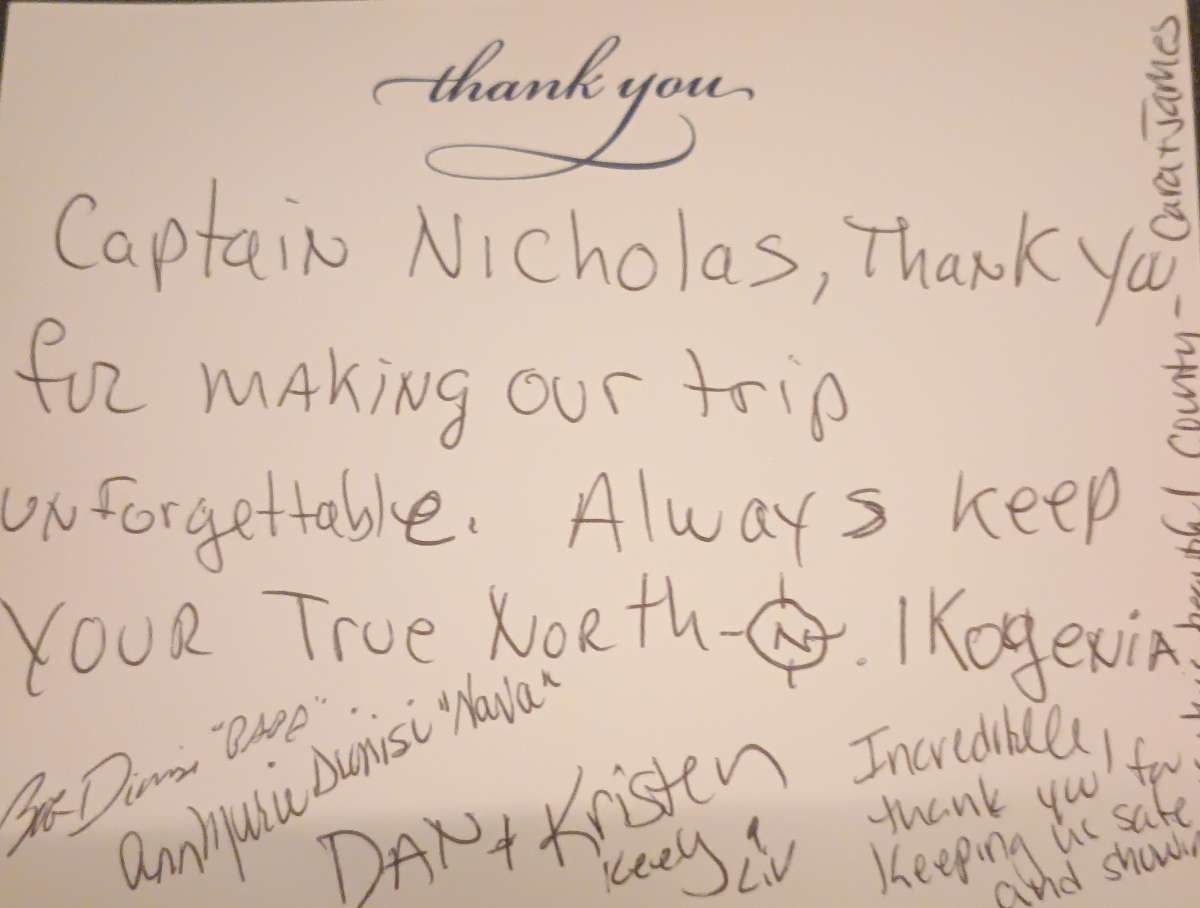 thank you
Captain Nicholas, Thank you
for making our trip
unforgettable. Always keep
your True North N. IKogenia
"PAPA"
Dionisi "Nana"
DAN + Kristen
Keely & Liv
Incredible!
thank you for
keeping us safe
and showin
beautiful County - Cara + James